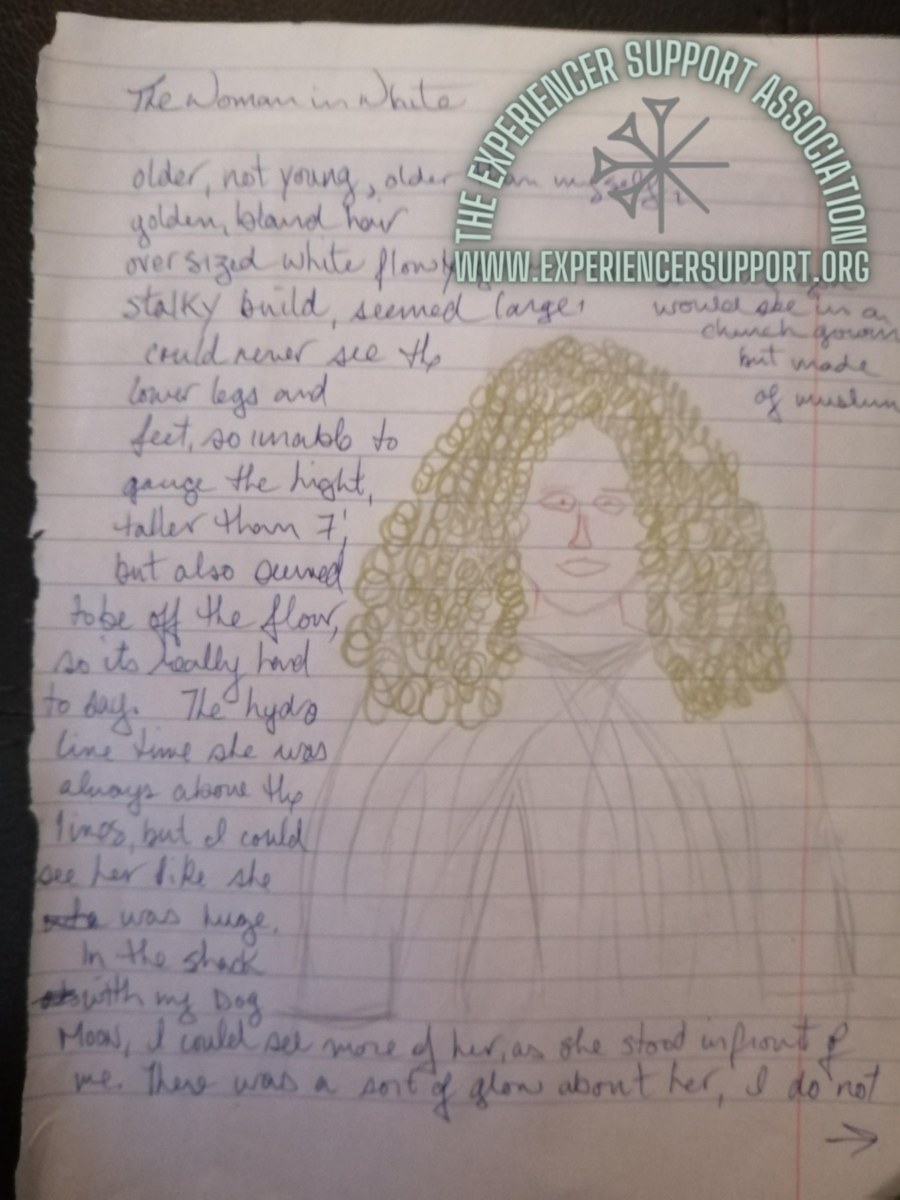 The Woman in White
THE EXPERIENCER SUPPORT ASSOCIATION
WWW.EXPERIENCERSUPPORT.ORG
older, not young, older than myself
golden, bland hair
oversized white flowy
stalky build, seemed large,
would see in a
church gown
but made
of muslum
could never see the
lower legs and
feet, so unable to
gauge the hight,
taller than 7',
but also seemed
to be off the flow,
so its really hard
to say. The hydro
line time she was
always above the
lines, but I could
see her like she
was huge.
In the shack
with my Dog
Moon, I could see more of her, as she stood infront of
me. There was a sort of glow about her, I do not
→